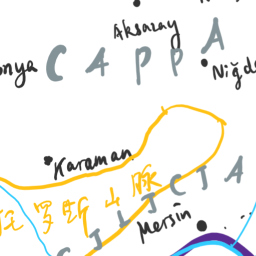 Aksaray
onya
CAPPA
Niğd
Karaman
托罗斯山脉
CILICIA
Mersin